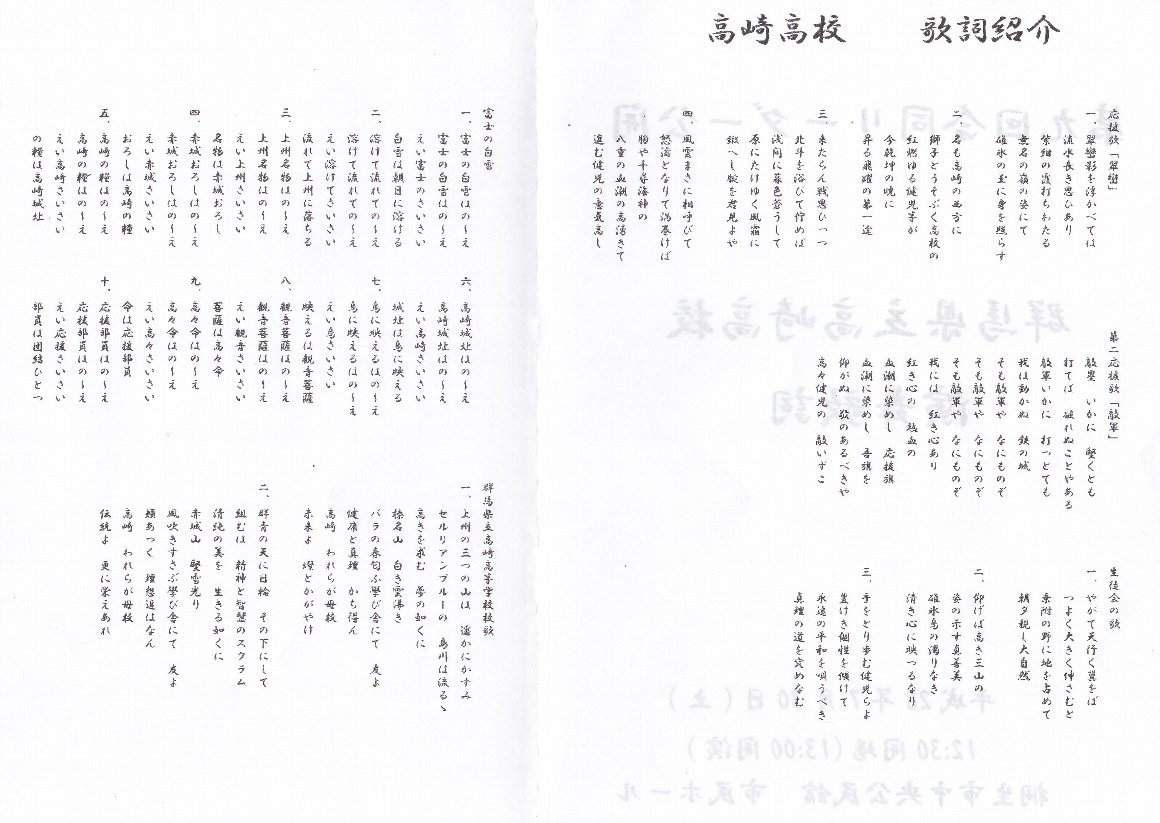 高崎高校　歌詞紹介
応援歌「翠巒」
一、翠巒影を浮かべては
流水長き思ひあり
紫紺の霞打ちわたる
無名の嶺の姿にて
碓氷の玉に身を照らす
二、名も高崎の西方に
獅子とうそぶく高校の
紅燃ゆる健児等が
今乾坤の暁に
昇る飛躍の第一途
三、来たらん戦思ひつつ
北斗を浴びて佇めば
浅間に暮色蒼うして
原にたけゆく風霜に
鍛へし腕を君見よや
四、風雲まさに相呼びて
怒濤となりて渦巻けば
胸や千尋海神の
八重の血潮の高湧きて
進む健児の意氣高し
第二応援歌「敵軍」
敵塁　いかに　堅くとも
打てば　破れぬことやある
敵軍いかに　打つとても
我は動かぬ　鉄の城
そも敵軍や　なにものぞ
そも敵軍や　なにものぞ
我には　紅き心あり
紅き心の　熱血の
血潮に染めし　応援旗
血潮に染めし　吾旗を
仰がぬ　敵のあるべきや
高々健児の　敵いずこ
生徒会の歌
一、やがて天行く翼をば
つよく大きく伸さむと
乗附の野に地を占めて
朝夕親し大自然
二、仰げば高き三山の
姿の示す真善美
碓氷烏の濁りなき
清き心に映つるなり
三、手をとり歩む健児らよ
蓋けき個性を傾けて
永遠の平和を唄うべき
真理の道を究めなむ
富士の白雪
一、富士の白雪はの～え
富士の白雪はの～え
えい富士のさいさい
白雪は朝日に溶ける
二、溶けて流れての～え
溶けて流れての～え
えい溶けてさいさい
流れて上州に落ちる
三、上州名物はの～え
上州名物はの～え
えい上州さいさい
名物は赤城おろし
四、赤城おろしはの～え
赤城おろしはの～え
えい赤城さいさい
おろしは高崎の糧
五、高崎の糧はの～え
高崎の糧はの～え
えい高崎さいさい
の糧は高崎城址
六、高崎城址はの～え
高崎城址はの～え
えい高崎さいさい
城址は烏に映える
七、烏に映えるはの～え
烏に映えるはの～え
えい烏さいさい
映えるは観音菩薩
八、観音菩薩はの～え
観音菩薩はの～え
えい観音さいさい
菩薩は高々命
九、高々命はの～え
高々命はの～え
えい高々さいさい
命は応援部員
十、応援部員はの～え
応援部員はの～え
えい応援さいさい
部員は団結ひとつ
群馬県立高崎高等学校校歌
一、上州の三つの山は　遥かにかすみ
セルリアンブルーの　烏川は流るゝ
高きを求む　夢の如くに
榛名山　白き雲沸き
バラの香匂ふ學び舎にて　友よ
健康と真理　かち得ん
高崎　われらが母校
未来よ　燈とかがやけ
二、群青の天に日輪　その下にして
組むは　精神と智慧のスクラム
清純の美を　生きる如くに
赤城山　堅雪光り
風吹きすさぶ學び舎にて　友よ
頬あつく　理想追はなん
高崎　われらが母校
伝統よ　更に栄えあれ